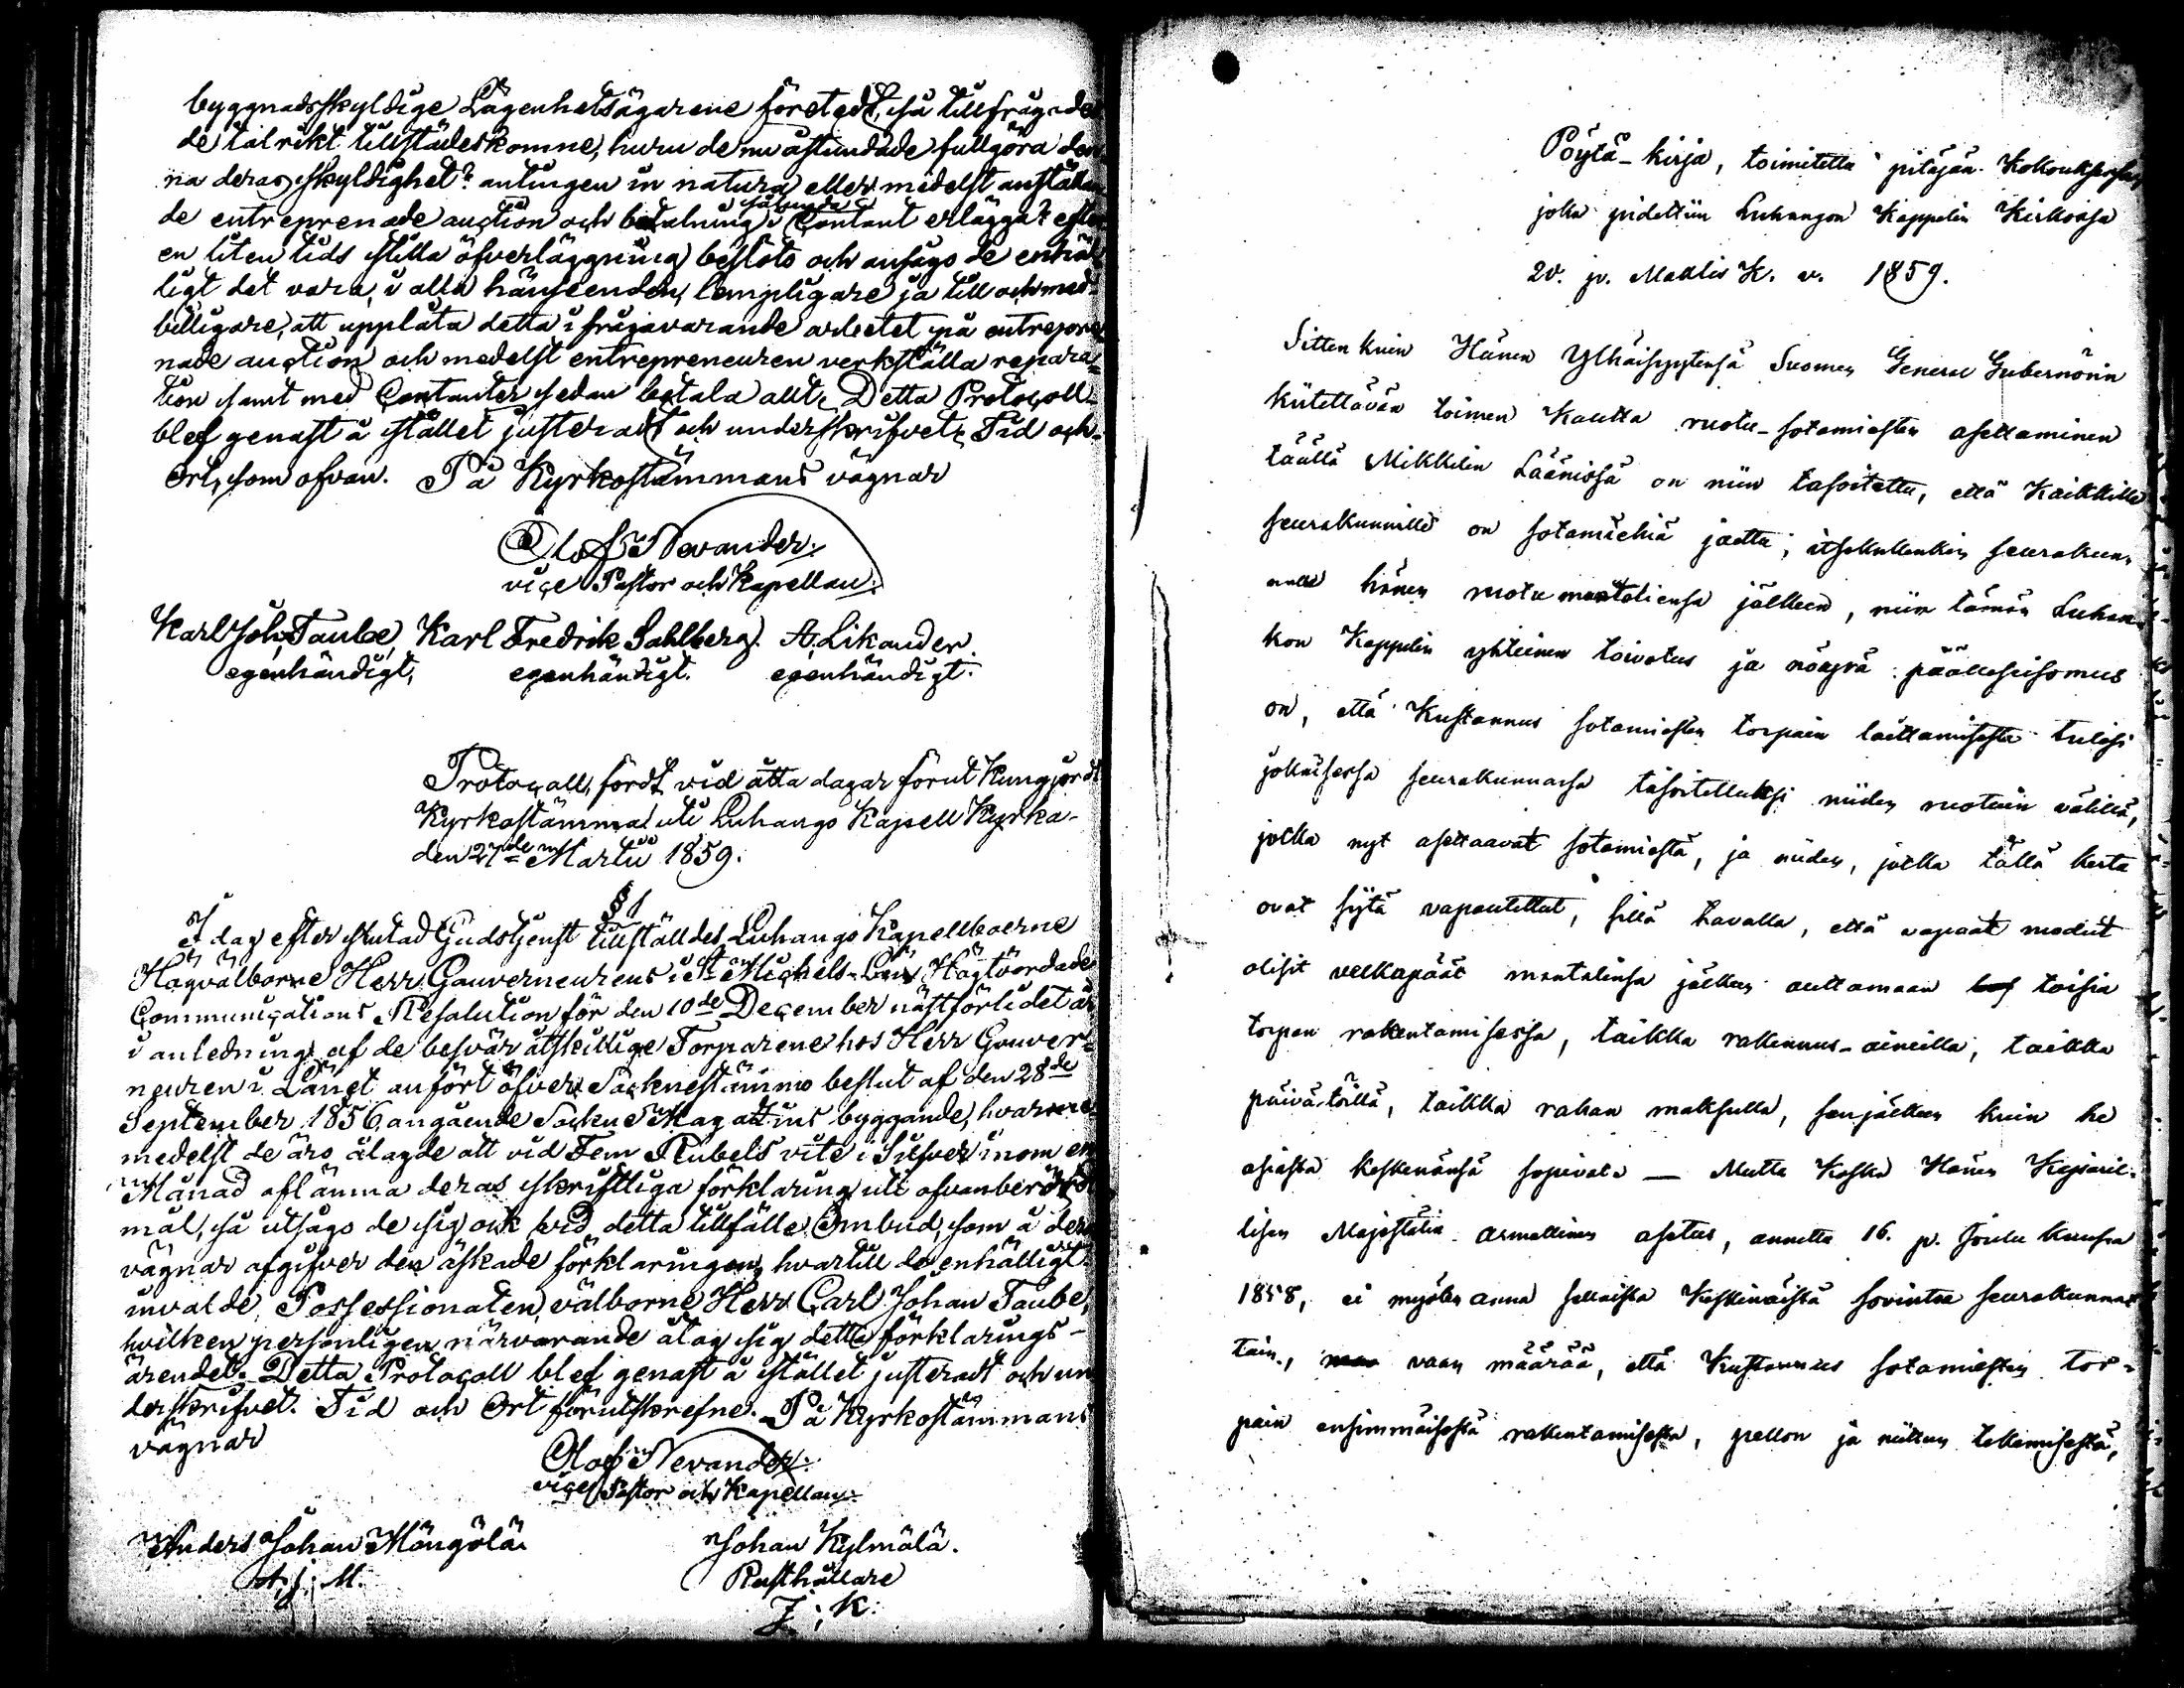 byggnadsskyldige Lägenhetsägarene företedt, så tillfrågades
de talrikt tillstädeskomne, huru de nu åstundade fullgöra den
na deras skyldighet? antingen in natura eller medelst anställan
de entreprenade auction och betalning i Contant erlägga? efter
en liten tids stilla öfverläggning beslöts och ansågs de enhäl
ligt det vara, i alla hänseenden, lempligare ja till och med
billigare, att upplåta detta i frågavarande arbetet på entrepre
nade auction och medelst entrepreneuren verkställa repara=
tion samt med Contanter sedan betala allt. Detta Protocoll
blef genast å stället justeradt och underskrifvet, Tid och
Ort, som ofvan. På Kyrkostämmans vägnar
Olof Nevander.
vice Pastor och Kapellan.
Karl Joh. Taube, Karl Fredrik Sahlberg. A. Likander.
egenhändigt, egenhändigt. egenhändigt.
Protocoll, fördt vid åtta dagar förut Kungjord
Kyrkostämma uti Luhango Kapell Kyrka
den 27de Martii 1859.
§ 1
I dag efter slutad Gudstjenst tillställdes Luhango Kapellboerne
Högvälborne Herr Gouverneurens i St Michels Län Högtvördade
Communications Resolution för den 10de December nästförlidet år
i anledning af de besvär åtskillige Torparene hos Herr Gouver=
neuren i Länet anfört öfver Socknestämmo beslut af den 28de
September 1856, angående Sockne Magazins byggande, hvarme
medelst de äro ålagde att vid Fem Rubels vite i Silfver inom en
Månad aflämna deras skriftliga förklaring uti ofvanberörde
mål, så utsågo de sig ock vid detta tillfälle Ombud, som å deras
vägnar afgifver den äskade förklaringen, hvartill de enhälligt
invalde Possessionaten, välborne Herr Carl Johan Taube,
hvilken personligen närvarande åtog sig detta förklarings-
ärendet. Detta Protocoll blef genast å stället justeradt och un
derskrifvet. Tid och Ort förutskrefne. På Kyrkostämmans
vägnar
Olof Nevander.
vice Pastor och Kapellan.
Anders Johan Mängölä. Johan Kylmälä.
A. J. M. Rusthållare
J. K.
Pöytä-kirja, toimitettu pitäjän Kokouksessa,
joka pidettiin Luhangon Kappelin Kirkossa
20. p. Maalis K. v. 1859.
Sitten kuin Hänen Ylhäisyytensä Suomen General Gubernörin
kiitettävän toimen Kautta ruotu-sotamiesten asettaminen
täällä Mikkelin Läänissä on niin tasoitettu, että Kaikille
seurakunnille on sotamiehiä jaettu, itsekullenkin seurakun-
nalle hänen ruotu mantaliensa jälkeen, niin tämän Luhan-
kon Kappelin yhteinen toivotus ja nöyrä päällesisomus
on, että Kustannus sotamiesten torpain laittamisesta tulisi
jokaisessa seurakunnassa tasoitetuksi niiden ruotuin välillä,
jotka nyt asettaavat sotamiestä, ja niiden, jotka tällä kerta
ovat siitä vapautettut, sillä tavalla, että vapaat ruodut
olisit velkapäät mantalinsa jälkeen auttamaan toisia
torpan rakentamisessa, taikka rakennus-aineilla, taikka
päivätöillä, taikka rahan maksulla, senjälkeen kuin he
asiasta keskenänsä sopivat. — Mutta Koska Hänen Keisaril-
lisen Majestätin armollinen asetus, annettu 16. p. Joulu kuussa
1858, ei myöden anna sellaista Keskinäistä sovintoa seurakunnat
tain, vaan määrää, että Kustannus sotamiesten tor-
pain ensimmäisestä rakentamisesta, pellon ja niitun tekemisestä,